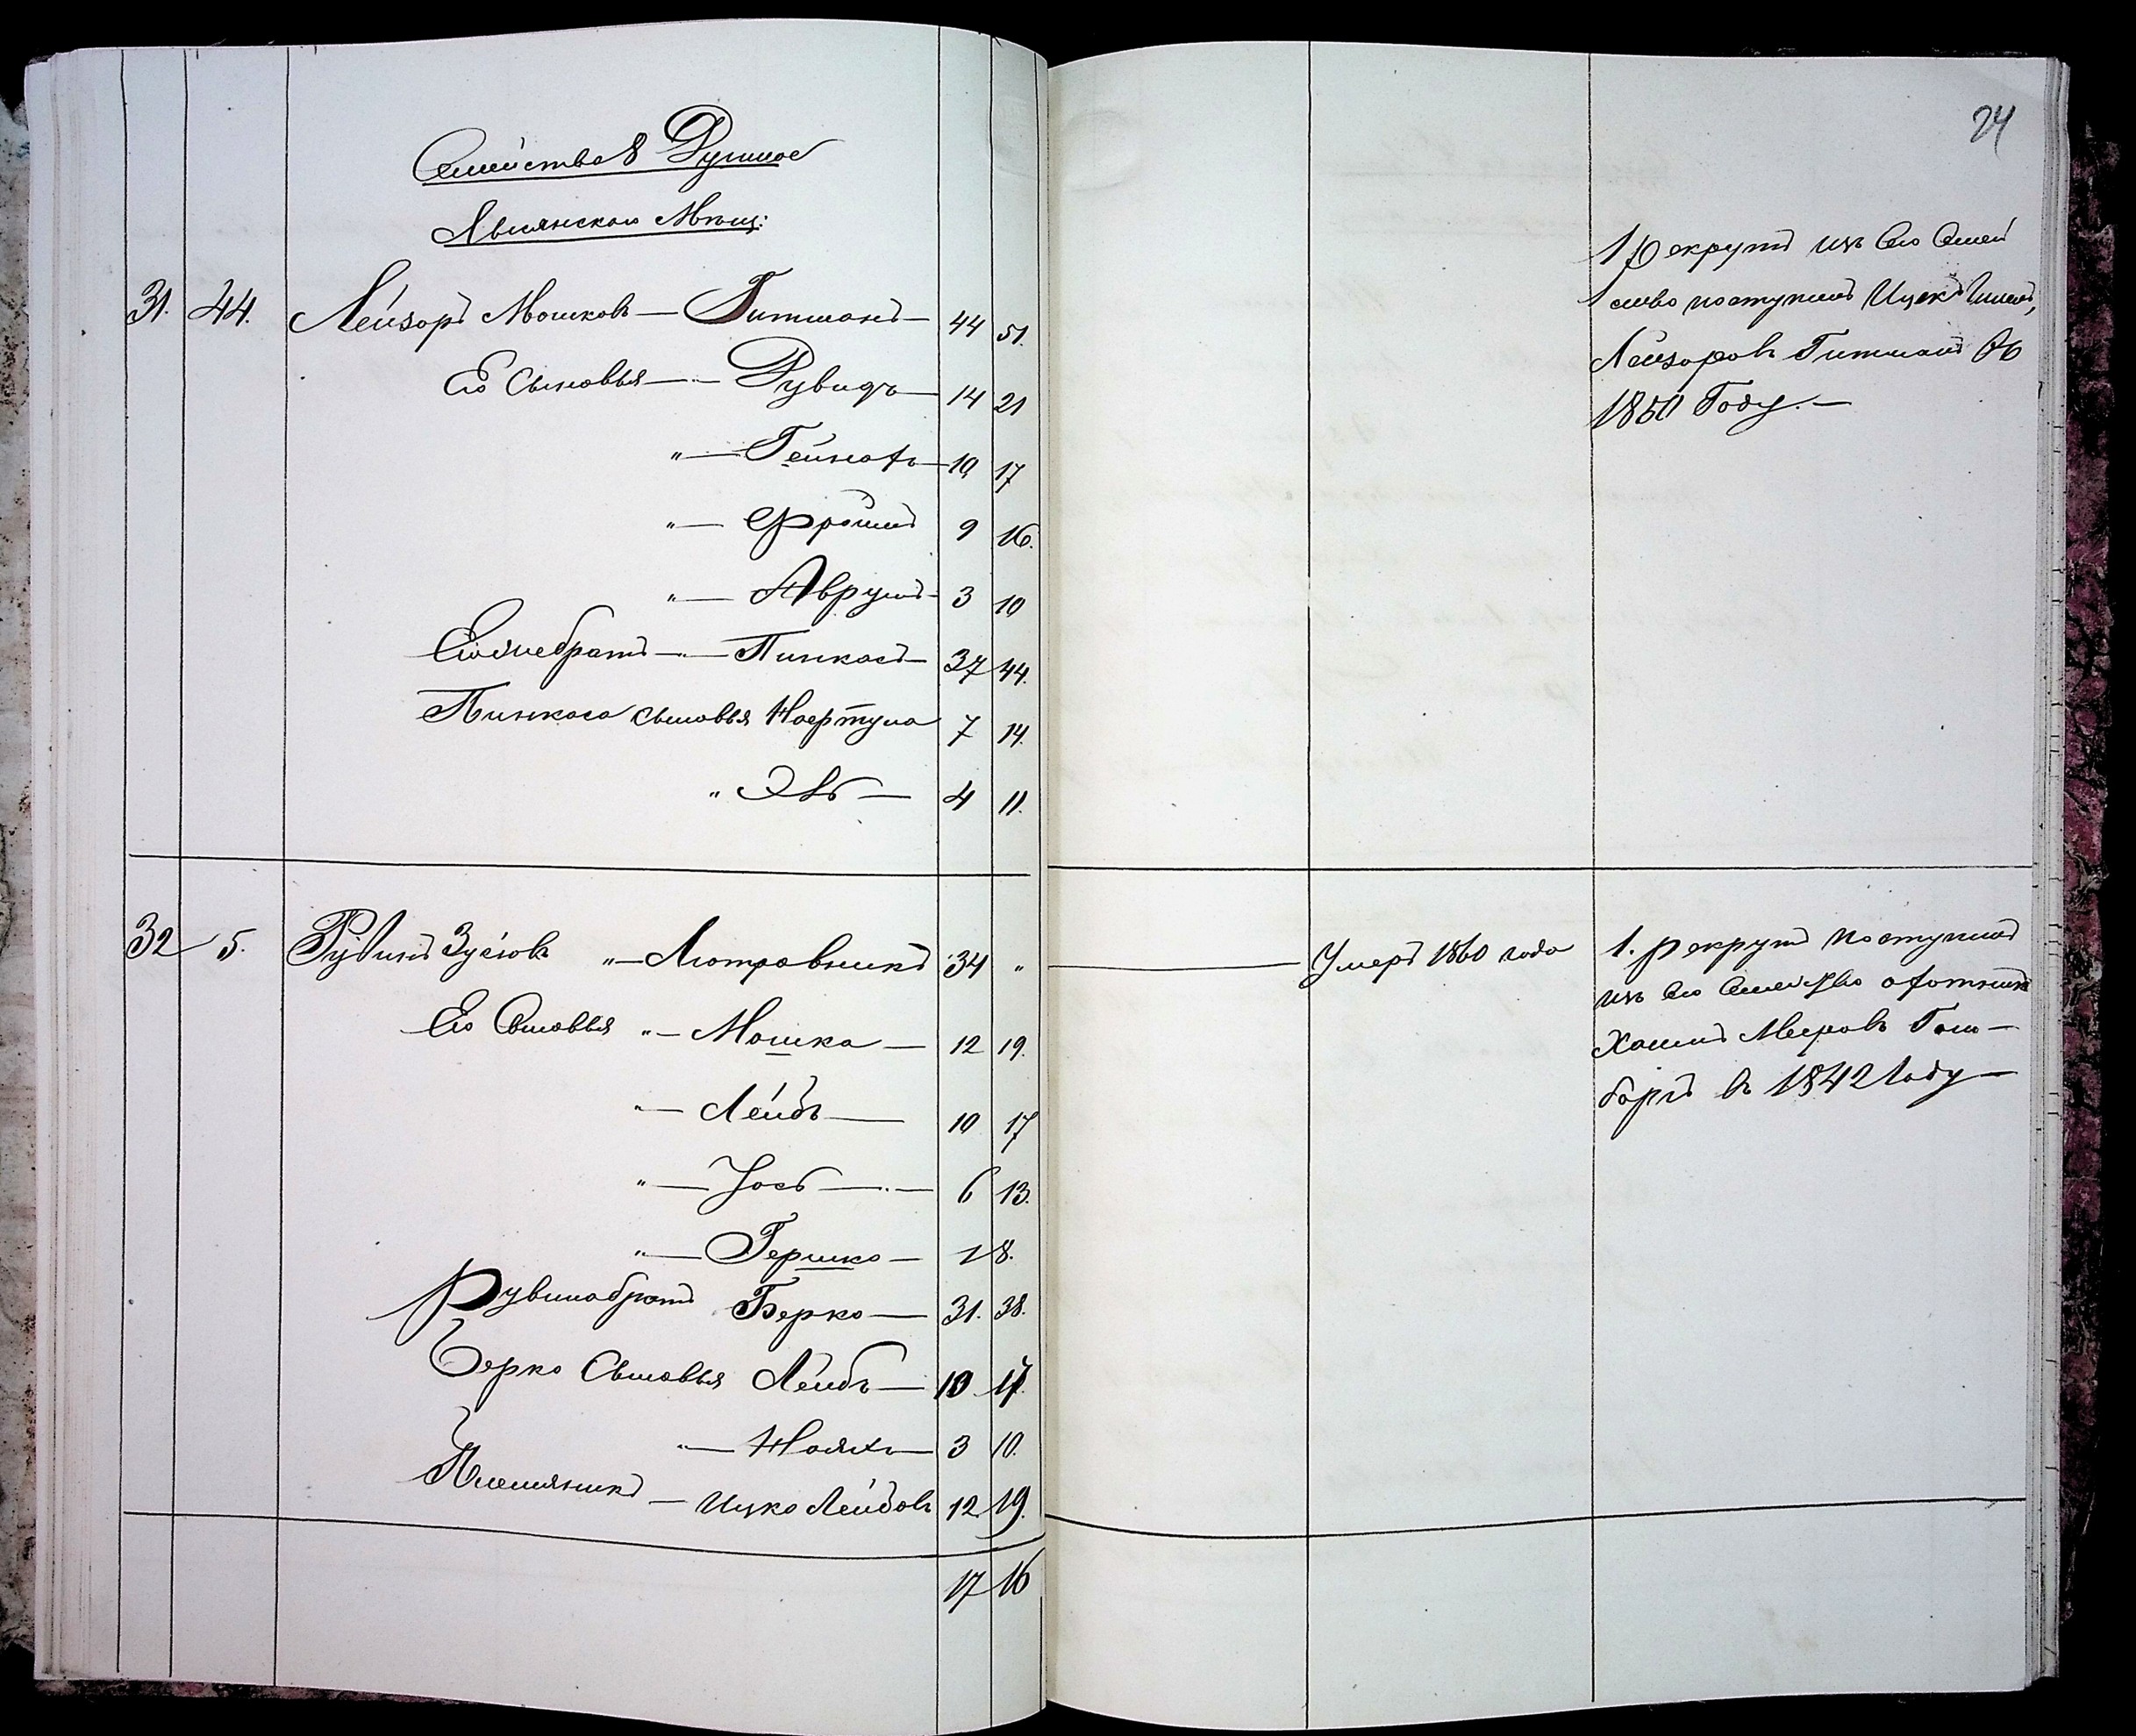 24
Семейства 8 Душное
Мѣщ:
31. 44. Лейзоръ Мошковъ — Гитманъ — 44 51.
Его Сыновья — Рувидъ — 14 21
" — Гейнахъ — 10 17
" — Фроимъ 9 16.
" — Аврумъ — 3 10
братъ — Пинкасъ — 37 44.
Пинкаса сыновья Нафтула 7 14.
" 4 11.
32 5. Рувинъ Зусовъ " — Лютровникъ 34 "
Его Сыновья " — Мошка — 12 19.
" — Лейбъ — 10 17
" — Іось — 6 13.
" — Гершко — 1 8.
Рувина братъ Берко — 31. 38.
Берко Сыновья Лейбъ — 10 17.
" — 3 10.
Племяникъ — Ицко Лейбовъ 12 19.
17 16
1 рекрутъ изъ его Семей
ство поступилъ Ицекъ
Лейзоровъ Гитманъ въ
1850 Году. —
Умеръ 1860 года
1. рекрутъ поступилъ
изъ его Семейства охотникъ
Хаимъ Мееровъ Гольд-
бергъ въ 1842 Году —